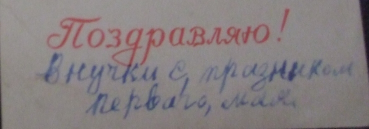 Поздравляю!
Внучки с, празником
первого, мая.